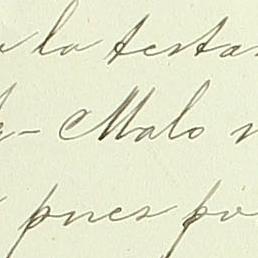 a la testa
- Malo
pues po